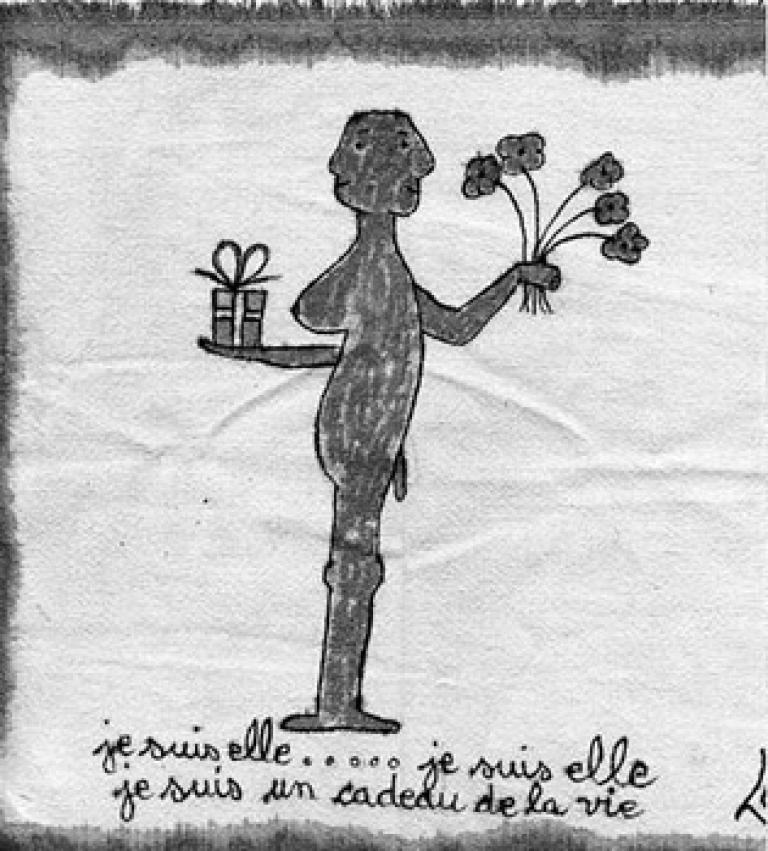 je suis elle..... je suis elle
je suis un cadeau de la vie